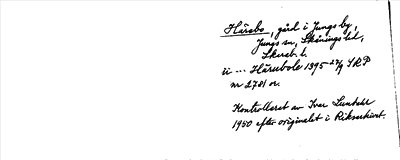 Häresbo, gård i Jungs by,
Jungs sn, Skånings hd,
Skarab. l.
ii ... Härubole 1395 27/9 SRP
nr 2781 or.
Kontrollerat av Ivar Lundahl
1950 efter originalet i Riksarkivet.